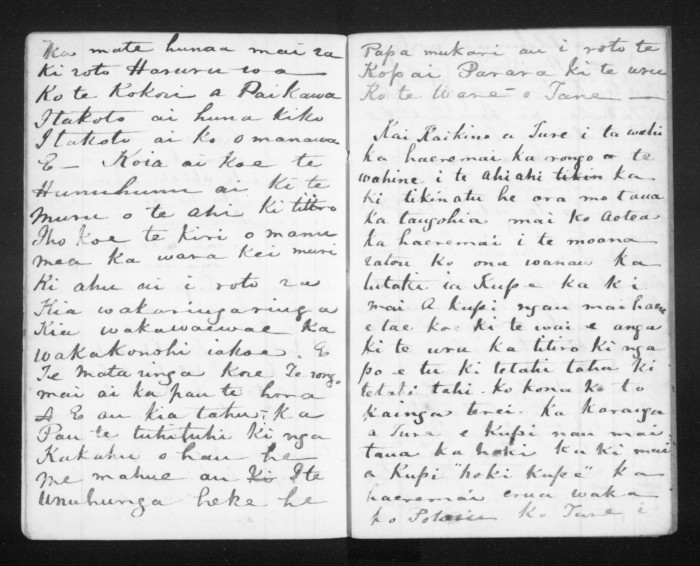 Ka mate hunaa mai ra
ki roto Haruru wa
Ko te Kokori a Paikawa
Itakoto ai huna kiko
Itakoto ai ko o manawa
E – Koia ai koe te
Hunuhunu ai ki te
muru o te ahi ki titiro
Iho koe te kiri o manu
mea ka wara kei muri
Ki ahu ai i roto ra
Kia wakaringaringa
Kia wakawaewae ka
wakakonohi iakoe. E
Te mata unga koe Te rongo
mai ai ka pau te hora
E au kia tahu. Ka
Pau te tuhituhi ki nga
Kakahu o hau he
me mahue au ki Ite
Unuhunga heke he
Papa mukari au i roto te
Kopai Parara ki te uru
Ko te Ware o Tane
Kai Raikino a Ture i ta wahi
ka haeremai ka rongo te
wahine i te ahiahi tikin ka
ki tikinatu he ora mo taua
ka taugohia mai ko Aotea
ka haeremai i te moana
ratou ko ona wanau ka
tutatu ia Kupe ka ki
mai A Kupi ngau mai haere
e tae koe ki te wai e anga
ki te uru ka titiro ki nga
po e tu ki tetahi taha ki
tetahi tahi. ko kona ko to
kainga tenei. ka karanga
a Ture e Kupi nau mai
taua ka hoki ka ki mai
a Kupi "hoki Kupe" ka
haeremai erua waka
ko Ture i